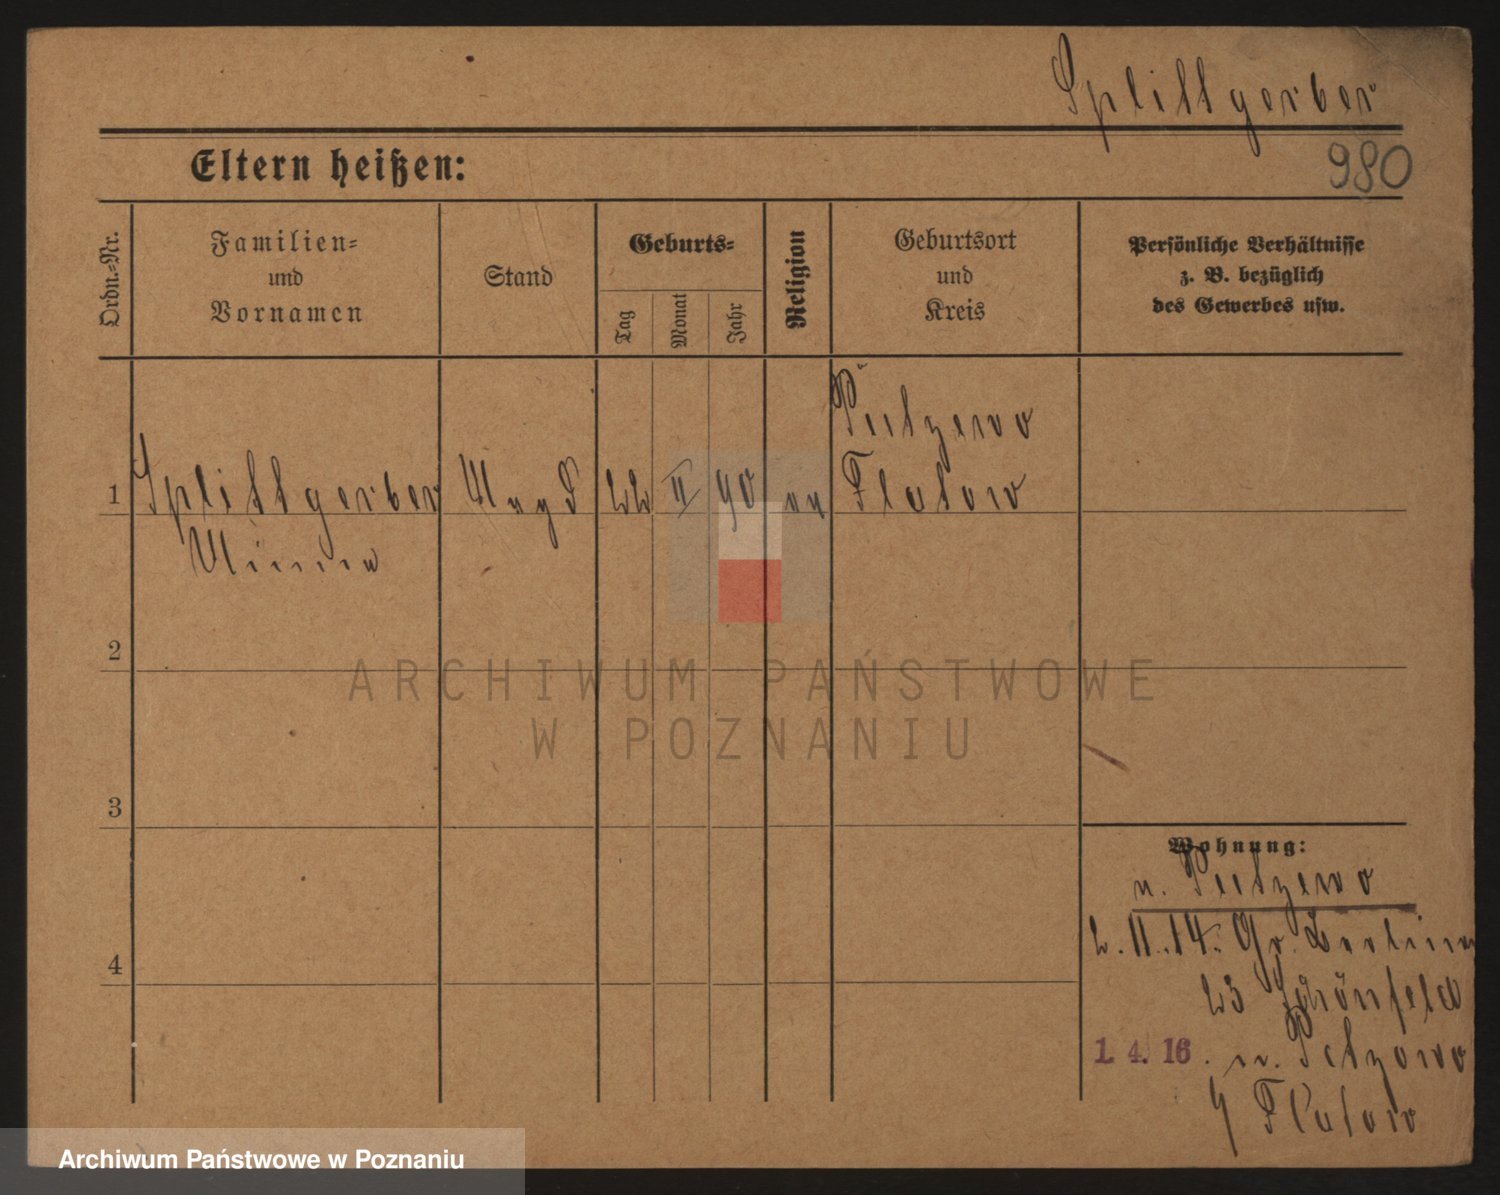 Splittgerber
980
Eltern heißen:
Ordn.=Nr.
Familien=
und
Vornamen
Stand
Geburts=
Tag
Monat
Jahr
Religion
Geburtsort
und
Kreis
Persönliche Verhältnisse
z. B. bezüglich
des Gewerbes usw.
Putzewo
1 Splittgerber Magd 22 II 90 ev Flatow
Minna
2
3
4
Wohnung:
n. Putzewo
2. 11. 14. Gr. Berliner
23 Schönfeld
1. 4. 16. n. Petzewo
Flatow
ARCHIWUM PAŃSTWOWE
W POZNANIU
Archiwum Państwowe w Poznaniu